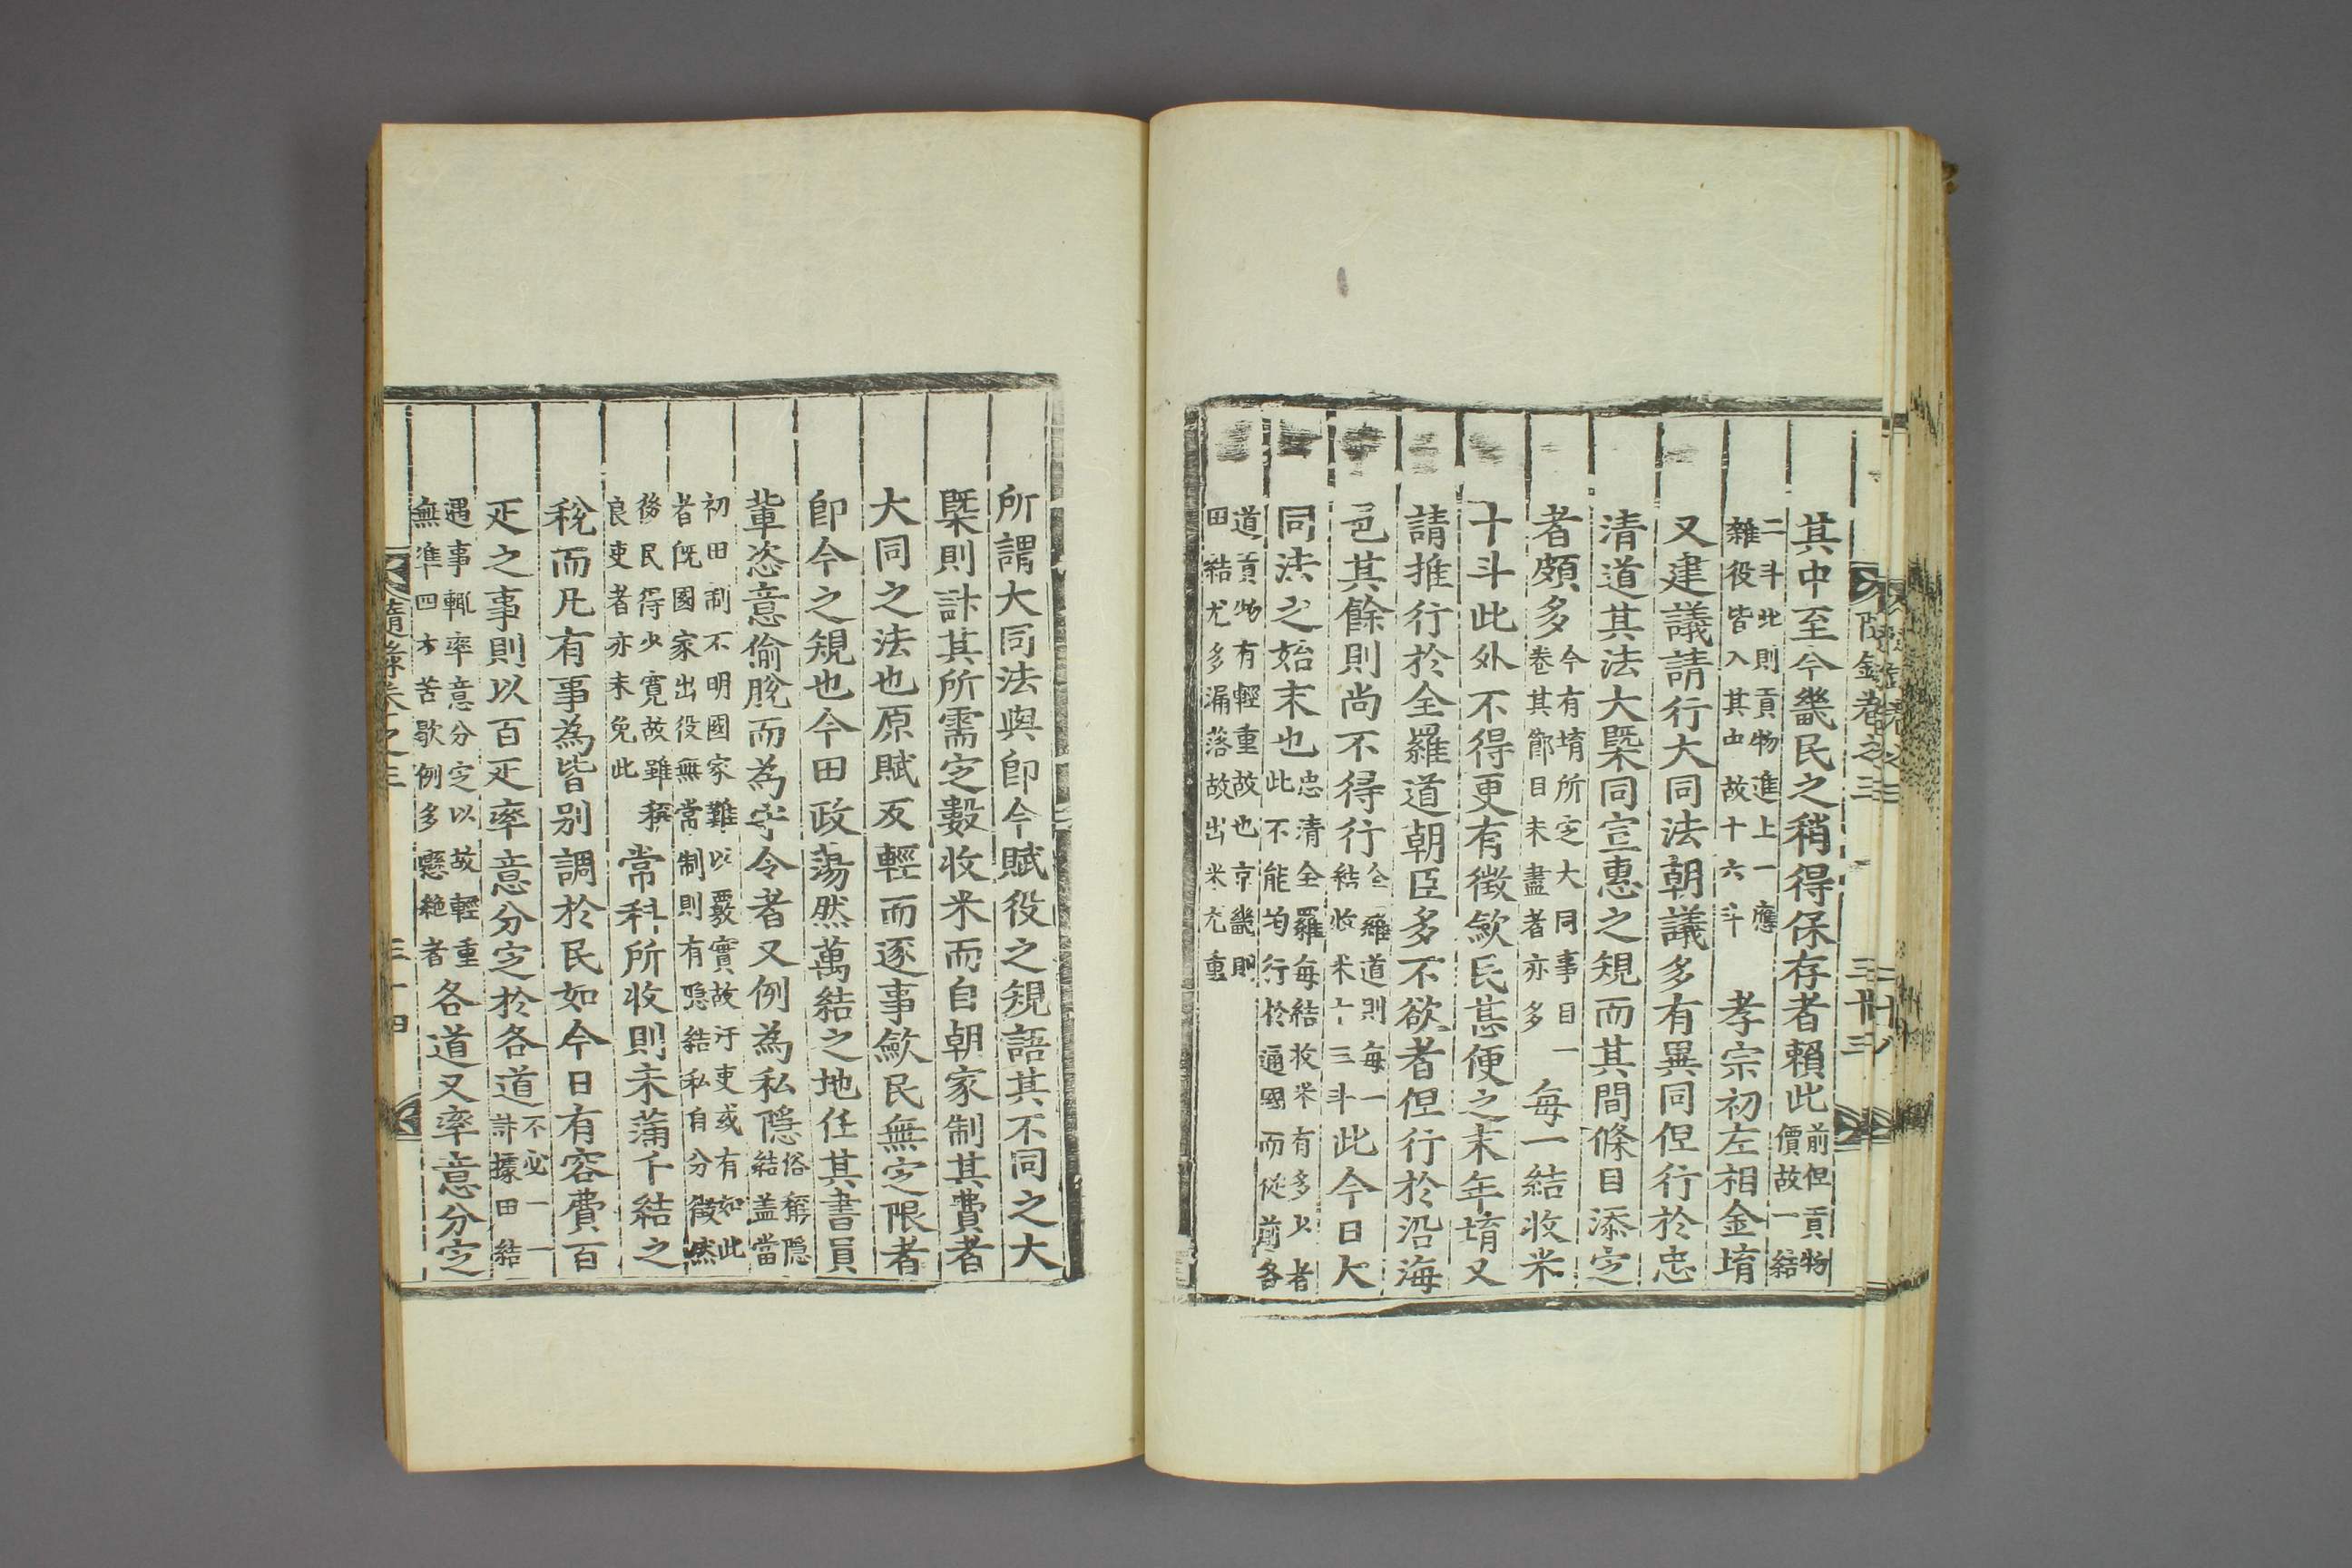 隨錄卷之三
三十三
其中至今畿民之稍得保存者賴此前但貢物
價故一結
二斗此則貢物進上一應
雜役皆入其中故十六斗
孝宗初左相金堉
又建議請行大同法朝議多有異同但行於忠
清道其法大槩同宣惠之規而其間條目添定
者頗多今有堉所定大同事目一
卷其節目未盡者亦多
每一結收米
十斗此外不得更有徵歛民甚便之末年堉又
請推行於全羅道朝臣多不欲者但行於沿海
邑其餘則尚不得行全羅道則每一
結收米十三斗
此今日大
同法之始末也忠清全羅每結收米有多少者
此不能均行於通國而從前各
道貢物有輕重故也京畿則
田結尤多漏落故出米尤重
所謂大同法與卽今賦役之規語其不同之大
槩則計其所需定數收米而自朝家制其費者
大同之法也原賦反輕而逐事歛民無定限者
卽今之規也今田政蕩然萬結之地任其書員
輩恣意偷脫而為守令者又例為私隱俗稱隱
結盖當
初田制不明國家難以覈實故汙吏或有如此
者旣國家出役無常制則有隱結私自分徵然
後民得少寬故雖稱
良吏者亦未免此
常科所收則未蒲千結之
稅而凡有事為皆别調於民如今日有容費百
疋之事則以百疋率意分定於各道不必一一
計據田結
遇事輒率意分定以故輕重
無準四方苦歇例多懸絶者
各道又率意分定
隨錄卷之三
三十四